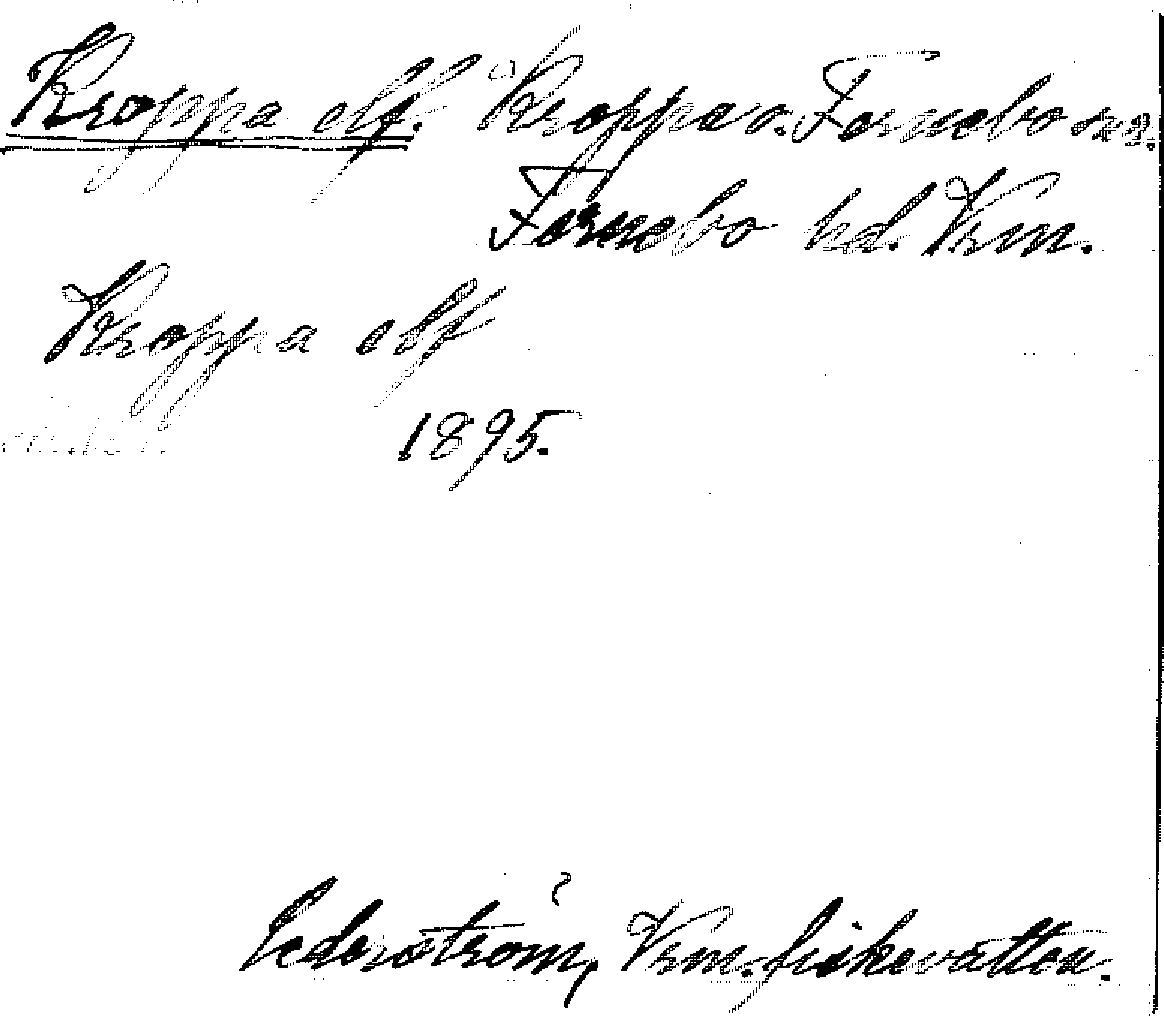 Kroppa elf. Kroppa o. Fernebo snr.
Fernebo hd. Vrm.
Kroppa elf
1895.
Cederström, Vrm. fiskevatten.